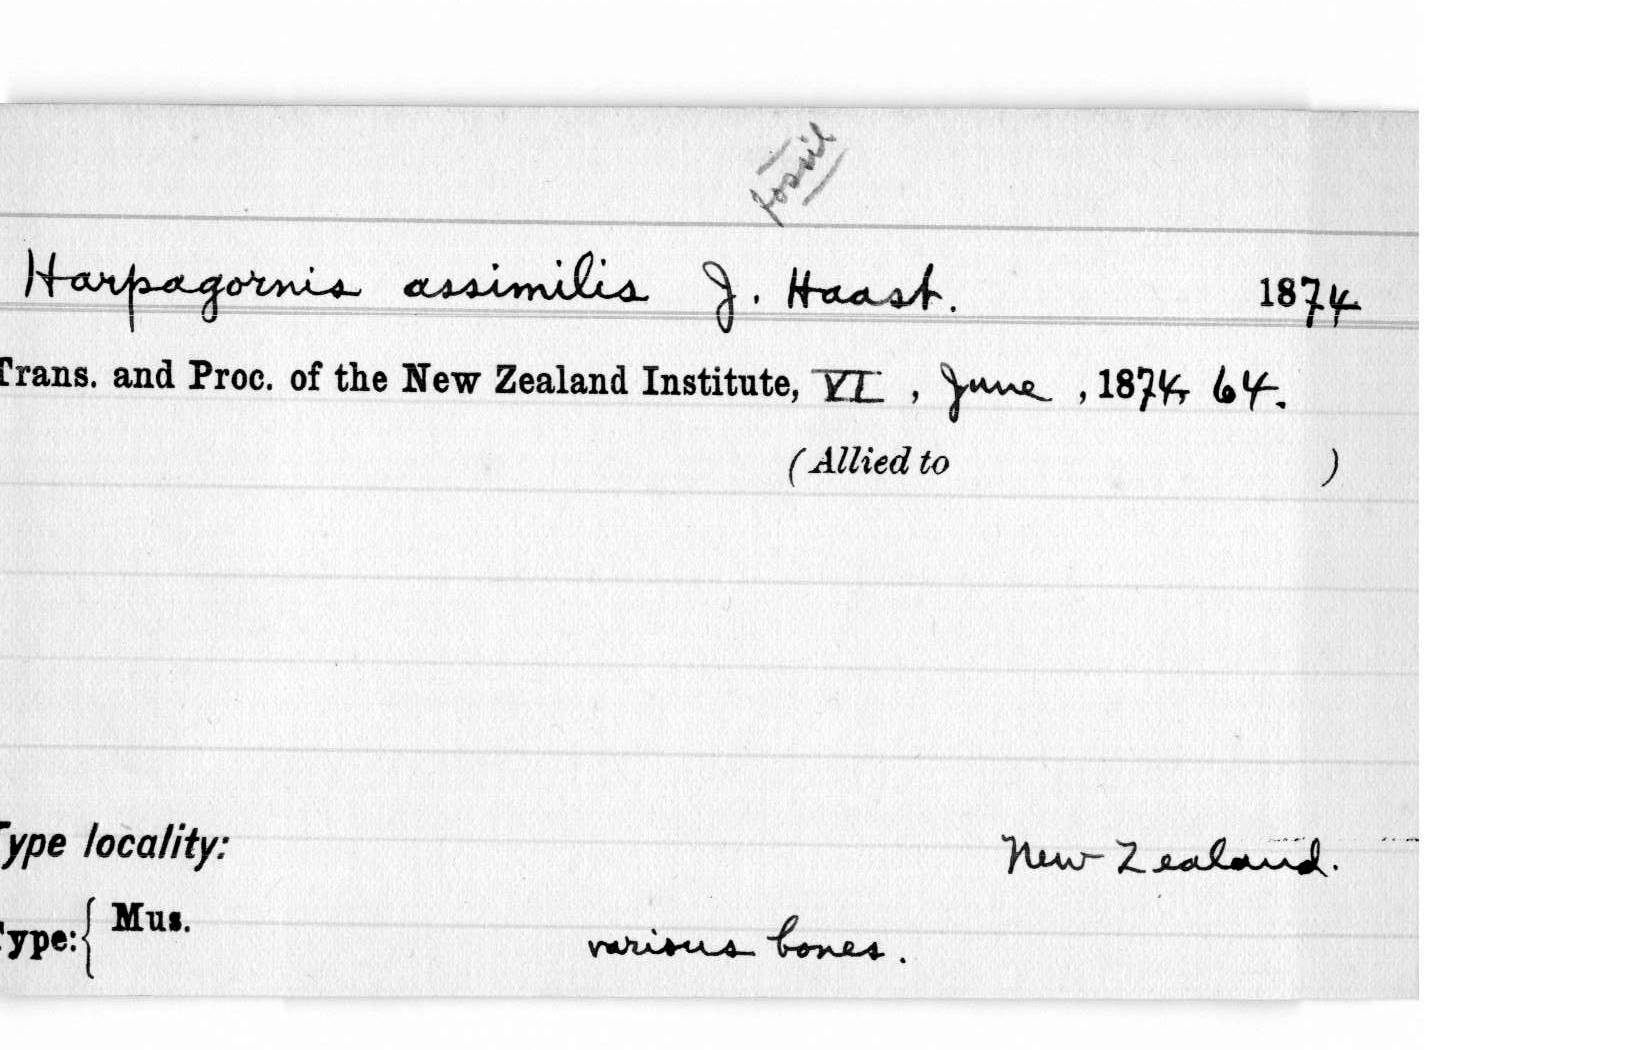 fossil
Harpagornis assimilis J. Haast. 1874
Trans. and Proc. of the New Zealand Institute, VI, June, 1874, 64.
(Allied to )
Type locality: New Zealand.
Type: { Mus. various bones.